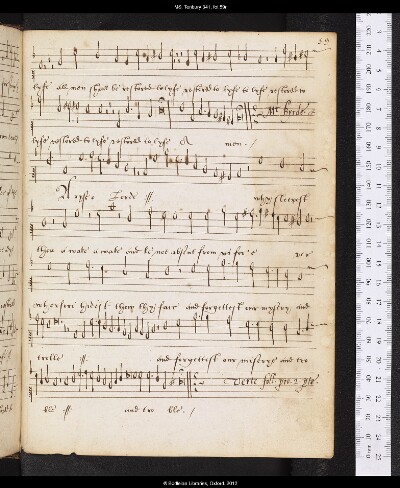 MS. Tenbury 341, fol.59r
59
lyfe all men shall be restored to lyfe restored to lyfe to lyfe restored to
Mr Birde
lyfe restored to lyfe restored to lyfe A men
A ryse o Lorde why sleepest
thou awake awake and be not absent from us for e ver
wherefore hidest thou thy face and forgettest our mysery and
trobble and forgettest our miserye and tro
ble and tro ble
© Bodleian Libraries, Oxford, 2012